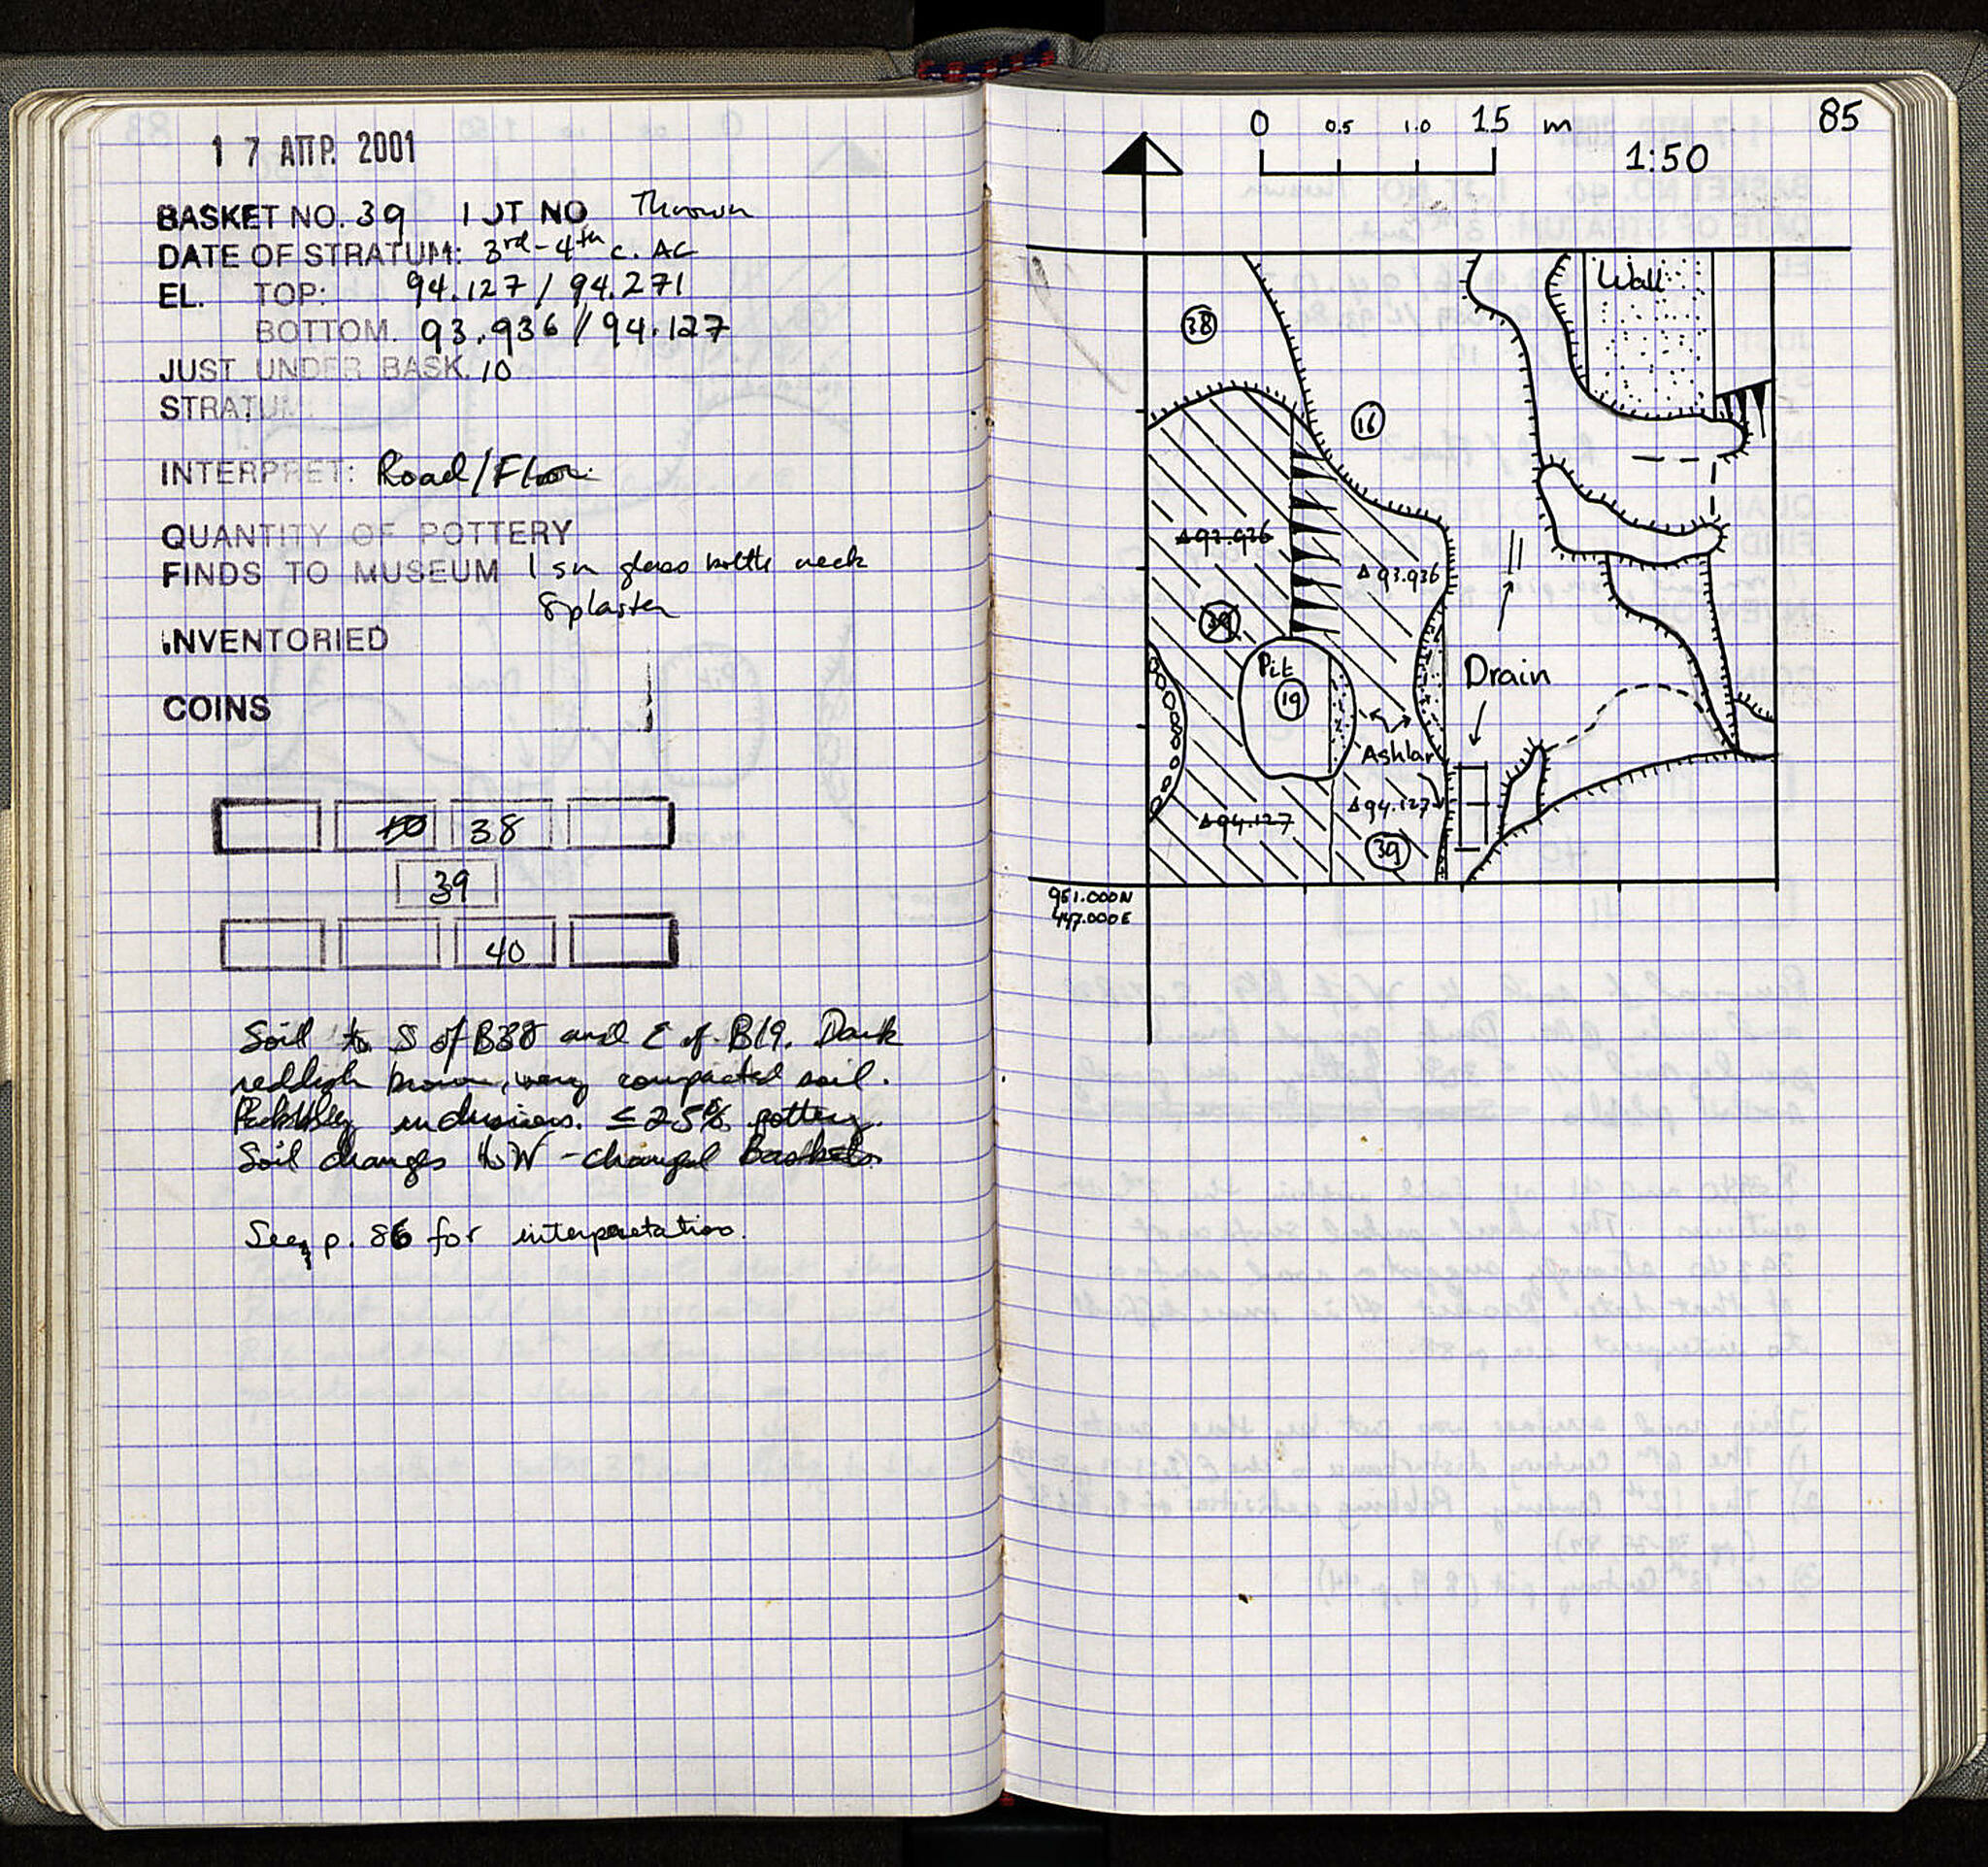 1 7 ΑΠΡ. 2001
BASKET NO. 39 LOT NO. Thrown
DATE OF STRATUM: 3rd-4th c. AC
EL. TOP: 94.127 / 94.271
BOTTOM. 93.936 // 94.127
JUST UNDER BASK. 10
STRATUM:
INTERPRET: Road/Floor
QUANTITY OF POTTERY
FINDS TO MUSEUM 1 sm glass bottle neck
& plaster
INVENTORIED
COINS
10 38
39
40
Soil to S of B38 and E of B19. Dark
reddish brown, very compacted soil.
Pebbley inclusions. ≤25% pottery.
Soil changes to W - changed Baskets
See p. 86 for interpretation.
85
0 0.5 1.0 1.5 m
1:50
Wall
38
16
Δ93.936
Δ93.936
39
Pit
19
Drain
Ashlar
Δ94.127
Δ94.127
39
951.000N
447.000E